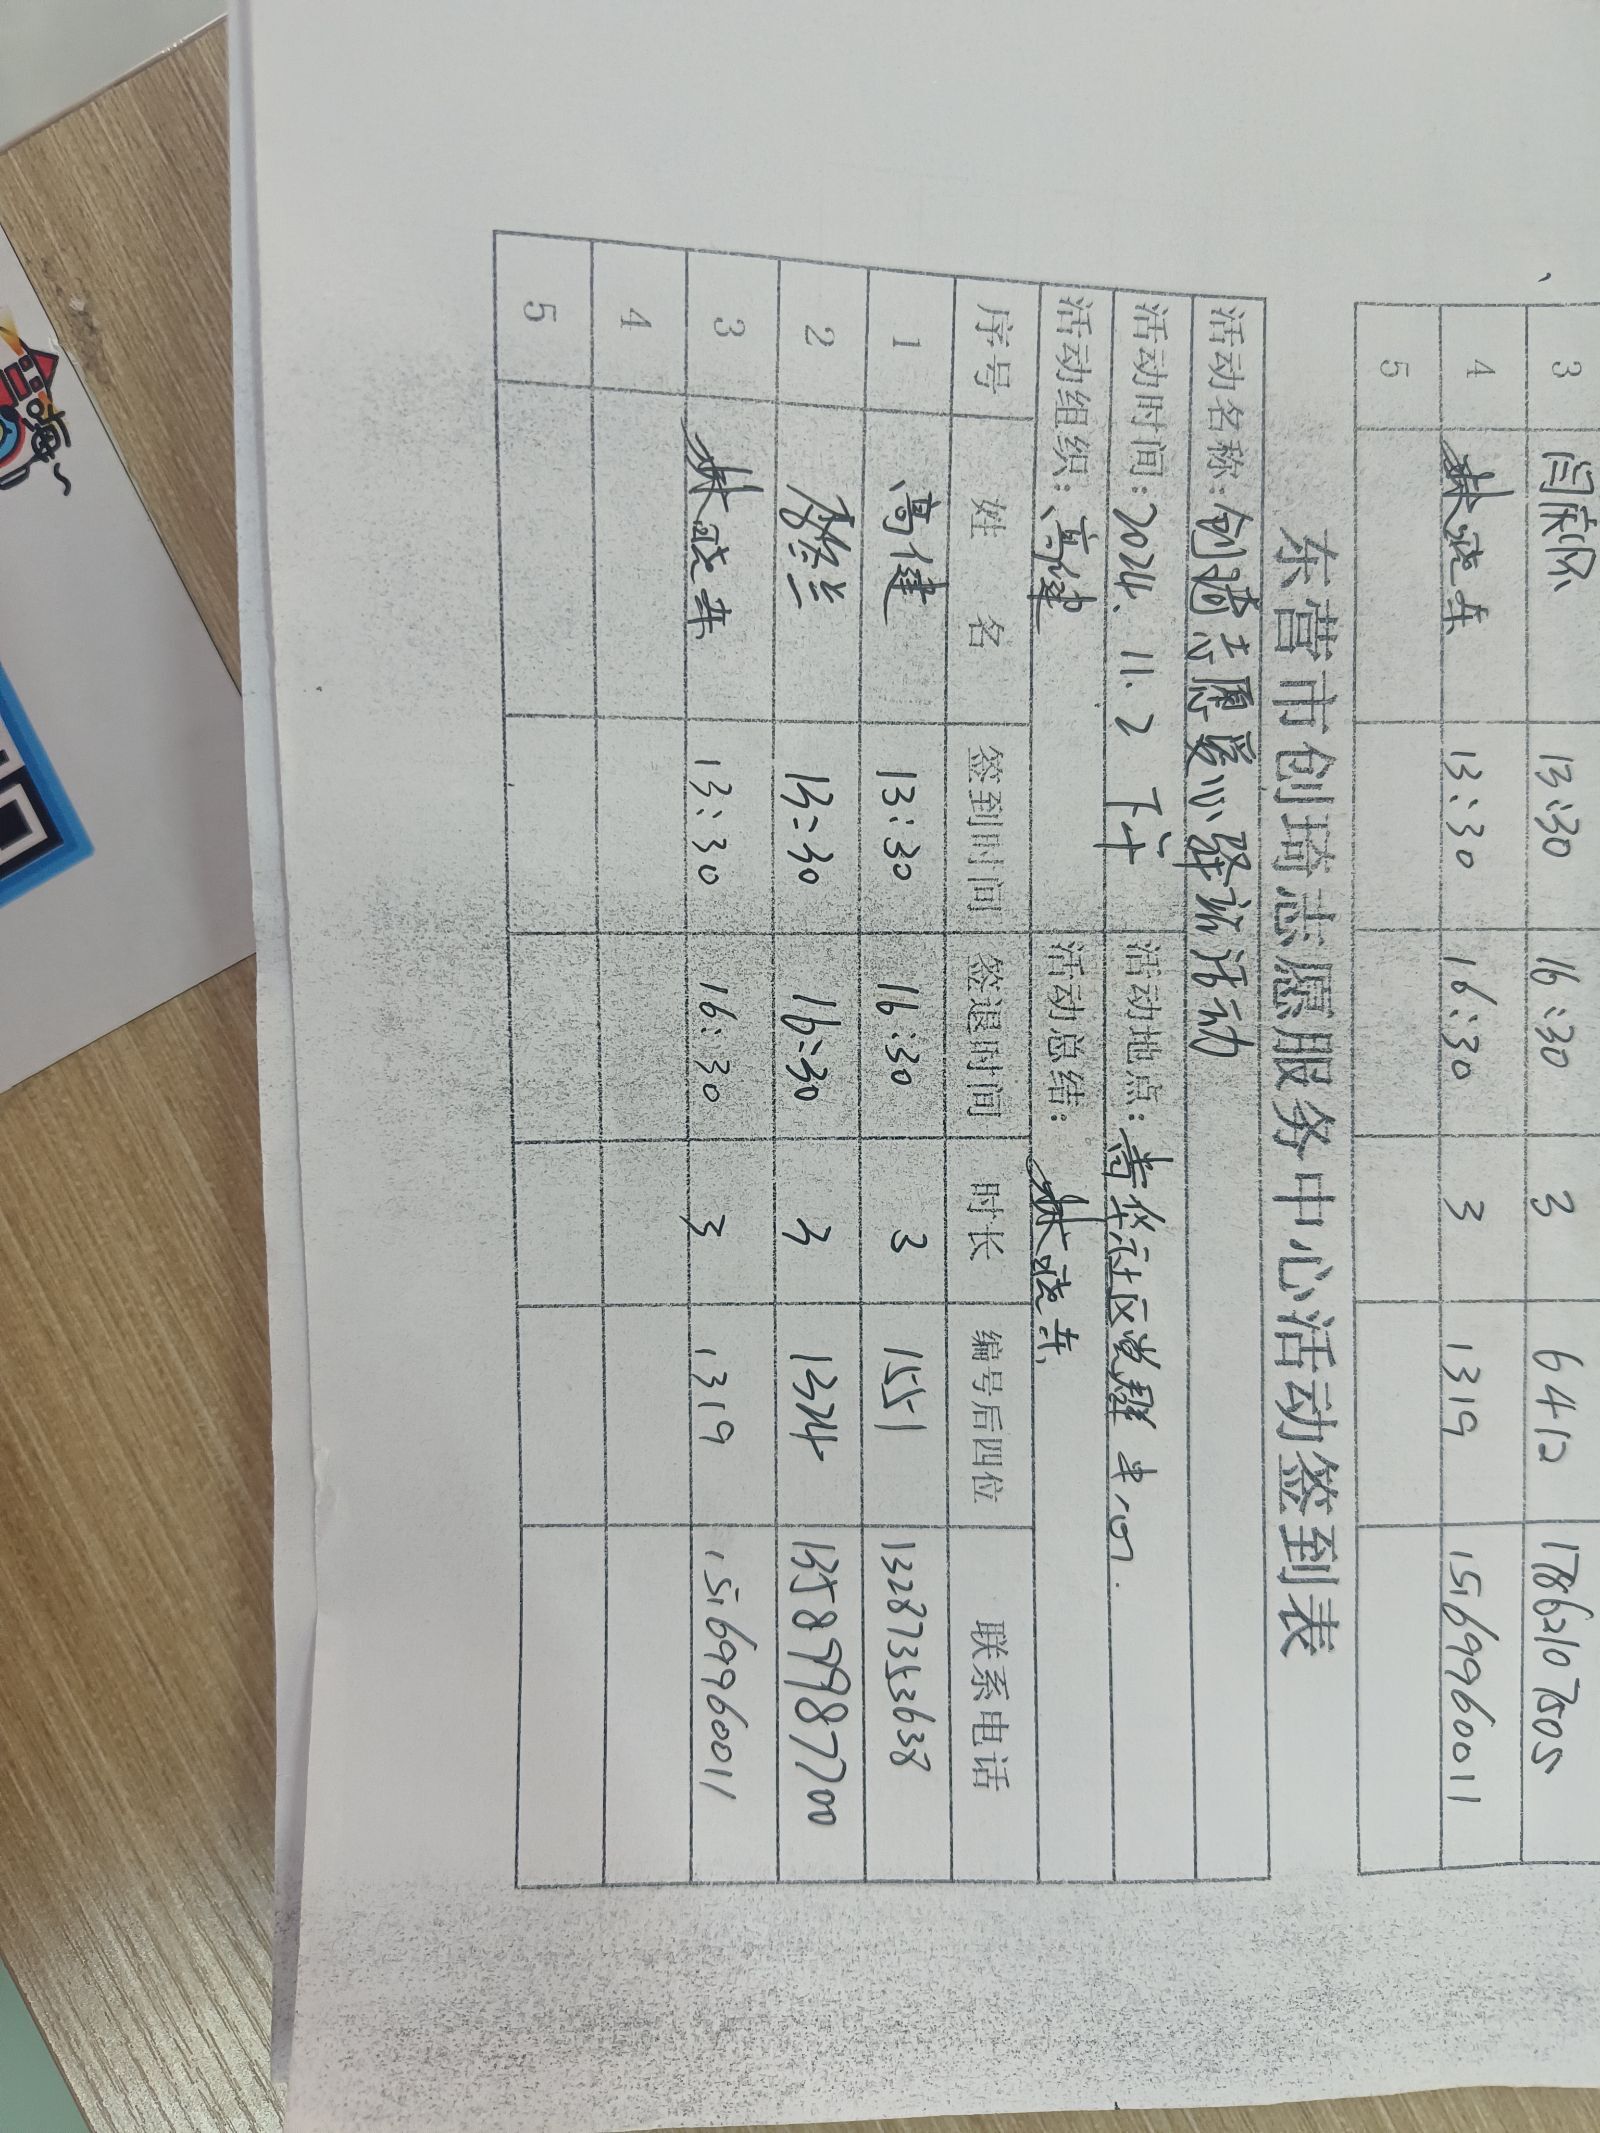 3 闫 13:30 16:30 3 6412 17862107505
4 林晓燕 13:30 16:30 3 1319 15169960011
5
东营市创琦志愿服务中心活动签到表
活动名称:创琦志愿爱心驿站活动
活动时间:2024.11.2 下午 活动地点:社区党群中心.
活动组织:高健 活动总结:
序号 姓名 签到时间 签退时间 时长 编号后四位 联系电话
1 高健 13:30 16:30 3 1551 13287353638
2 13:30 16:30 3 1324 13589987700
3 13:30 16:30 3 1319 15169960011
4
5